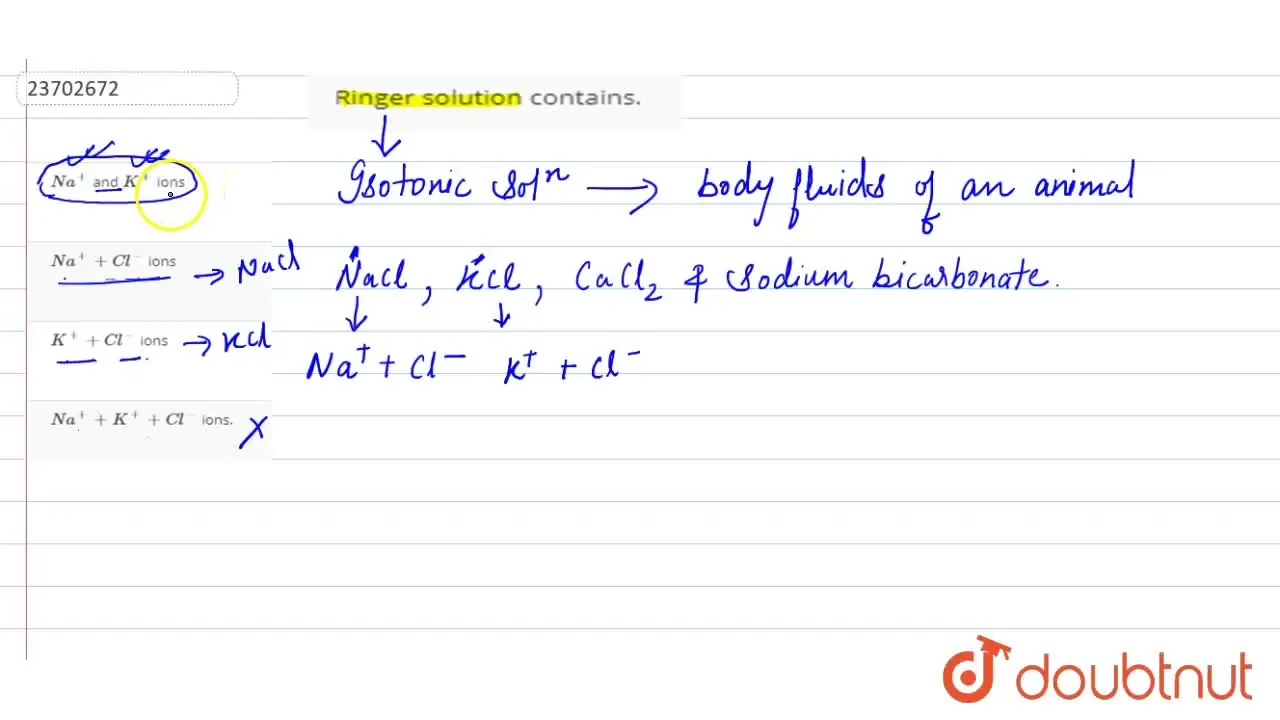 23702672
Ringer solution contains.
Na⁺ and K⁺ ions
Isotonic solⁿ → body fluids of an animal
Na⁺ + Cl⁻ ions → NaCl
NaCl, KCl, CaCl₂ & sodium bicarbonate.
K⁺ + Cl⁻ ions → KCl
Na⁺ + Cl⁻ K⁺ + Cl⁻
Na⁺ + K⁺ + Cl⁻ ions. X
doubtnut